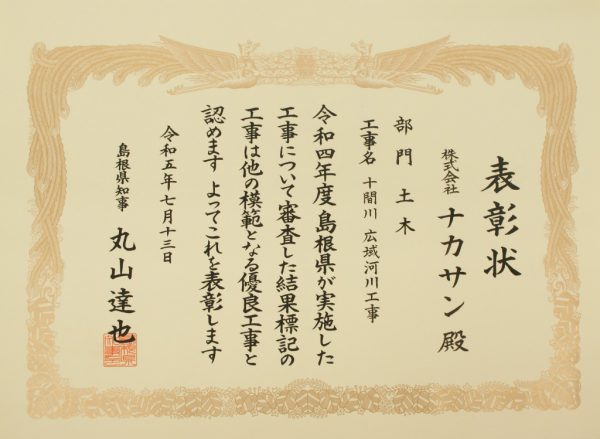 表彰状
株式会社 ナカサン 殿
部門 土木
工事名 十間川 広域河川工事
令和四年度 島根県が実施した
工事について審査した結果標記の
工事は他の模範となる優良工事と
認めます よってこれを表彰します
令和五年七月十三日
島根県知事 丸山達也